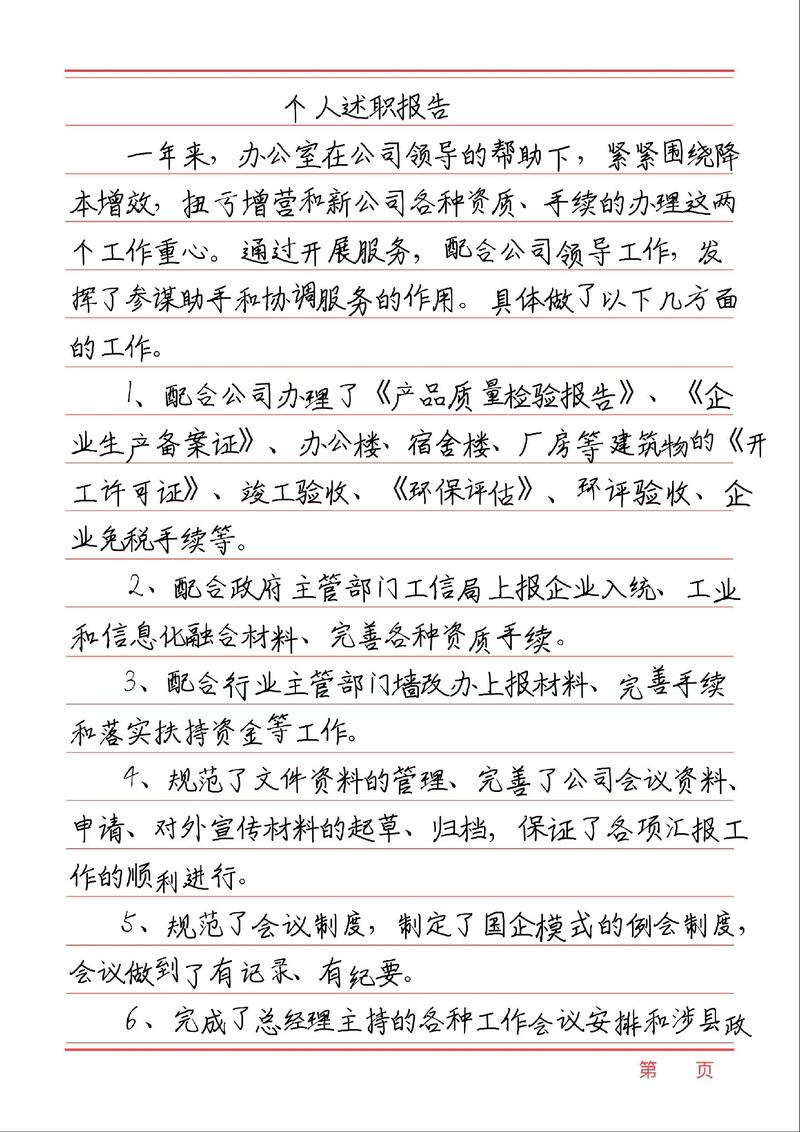 个人述职报告
一年来，办公室在公司领导的帮助下，紧紧围绕降
本增效，扭亏增营和新公司各种资质、手续的办理这两
个工作重心。通过开展服务，配合公司领导工作，发
挥了参谋助手和协调服务的作用。具体做了以下几方面
的工作。
1、配合公司办理了《产品质量检验报告》、《企
业生产备案证》、办公楼、宿舍楼、厂房等建筑物的《开
工许可证》、竣工验收、《环保评估》、环评验收、企
业免税手续等。
2、配合政府主管部门工信局上报企业入统、工业
和信息化融合材料、完善各种资质手续。
3、配合行业主管部门墙改办上报材料、完善手续
和落实扶持资金等工作。
4、规范了文件资料的管理、完善了公司会议资料、
申请、对外宣传材料的起草、归档，保证了各项汇报工
作的顺利进行。
5、规范了会议制度，制定了国企模式的例会制度，
会议做到了有记录、有纪要。
6、完成了总经理主持的各种工作会议安排和涉县政
第 页